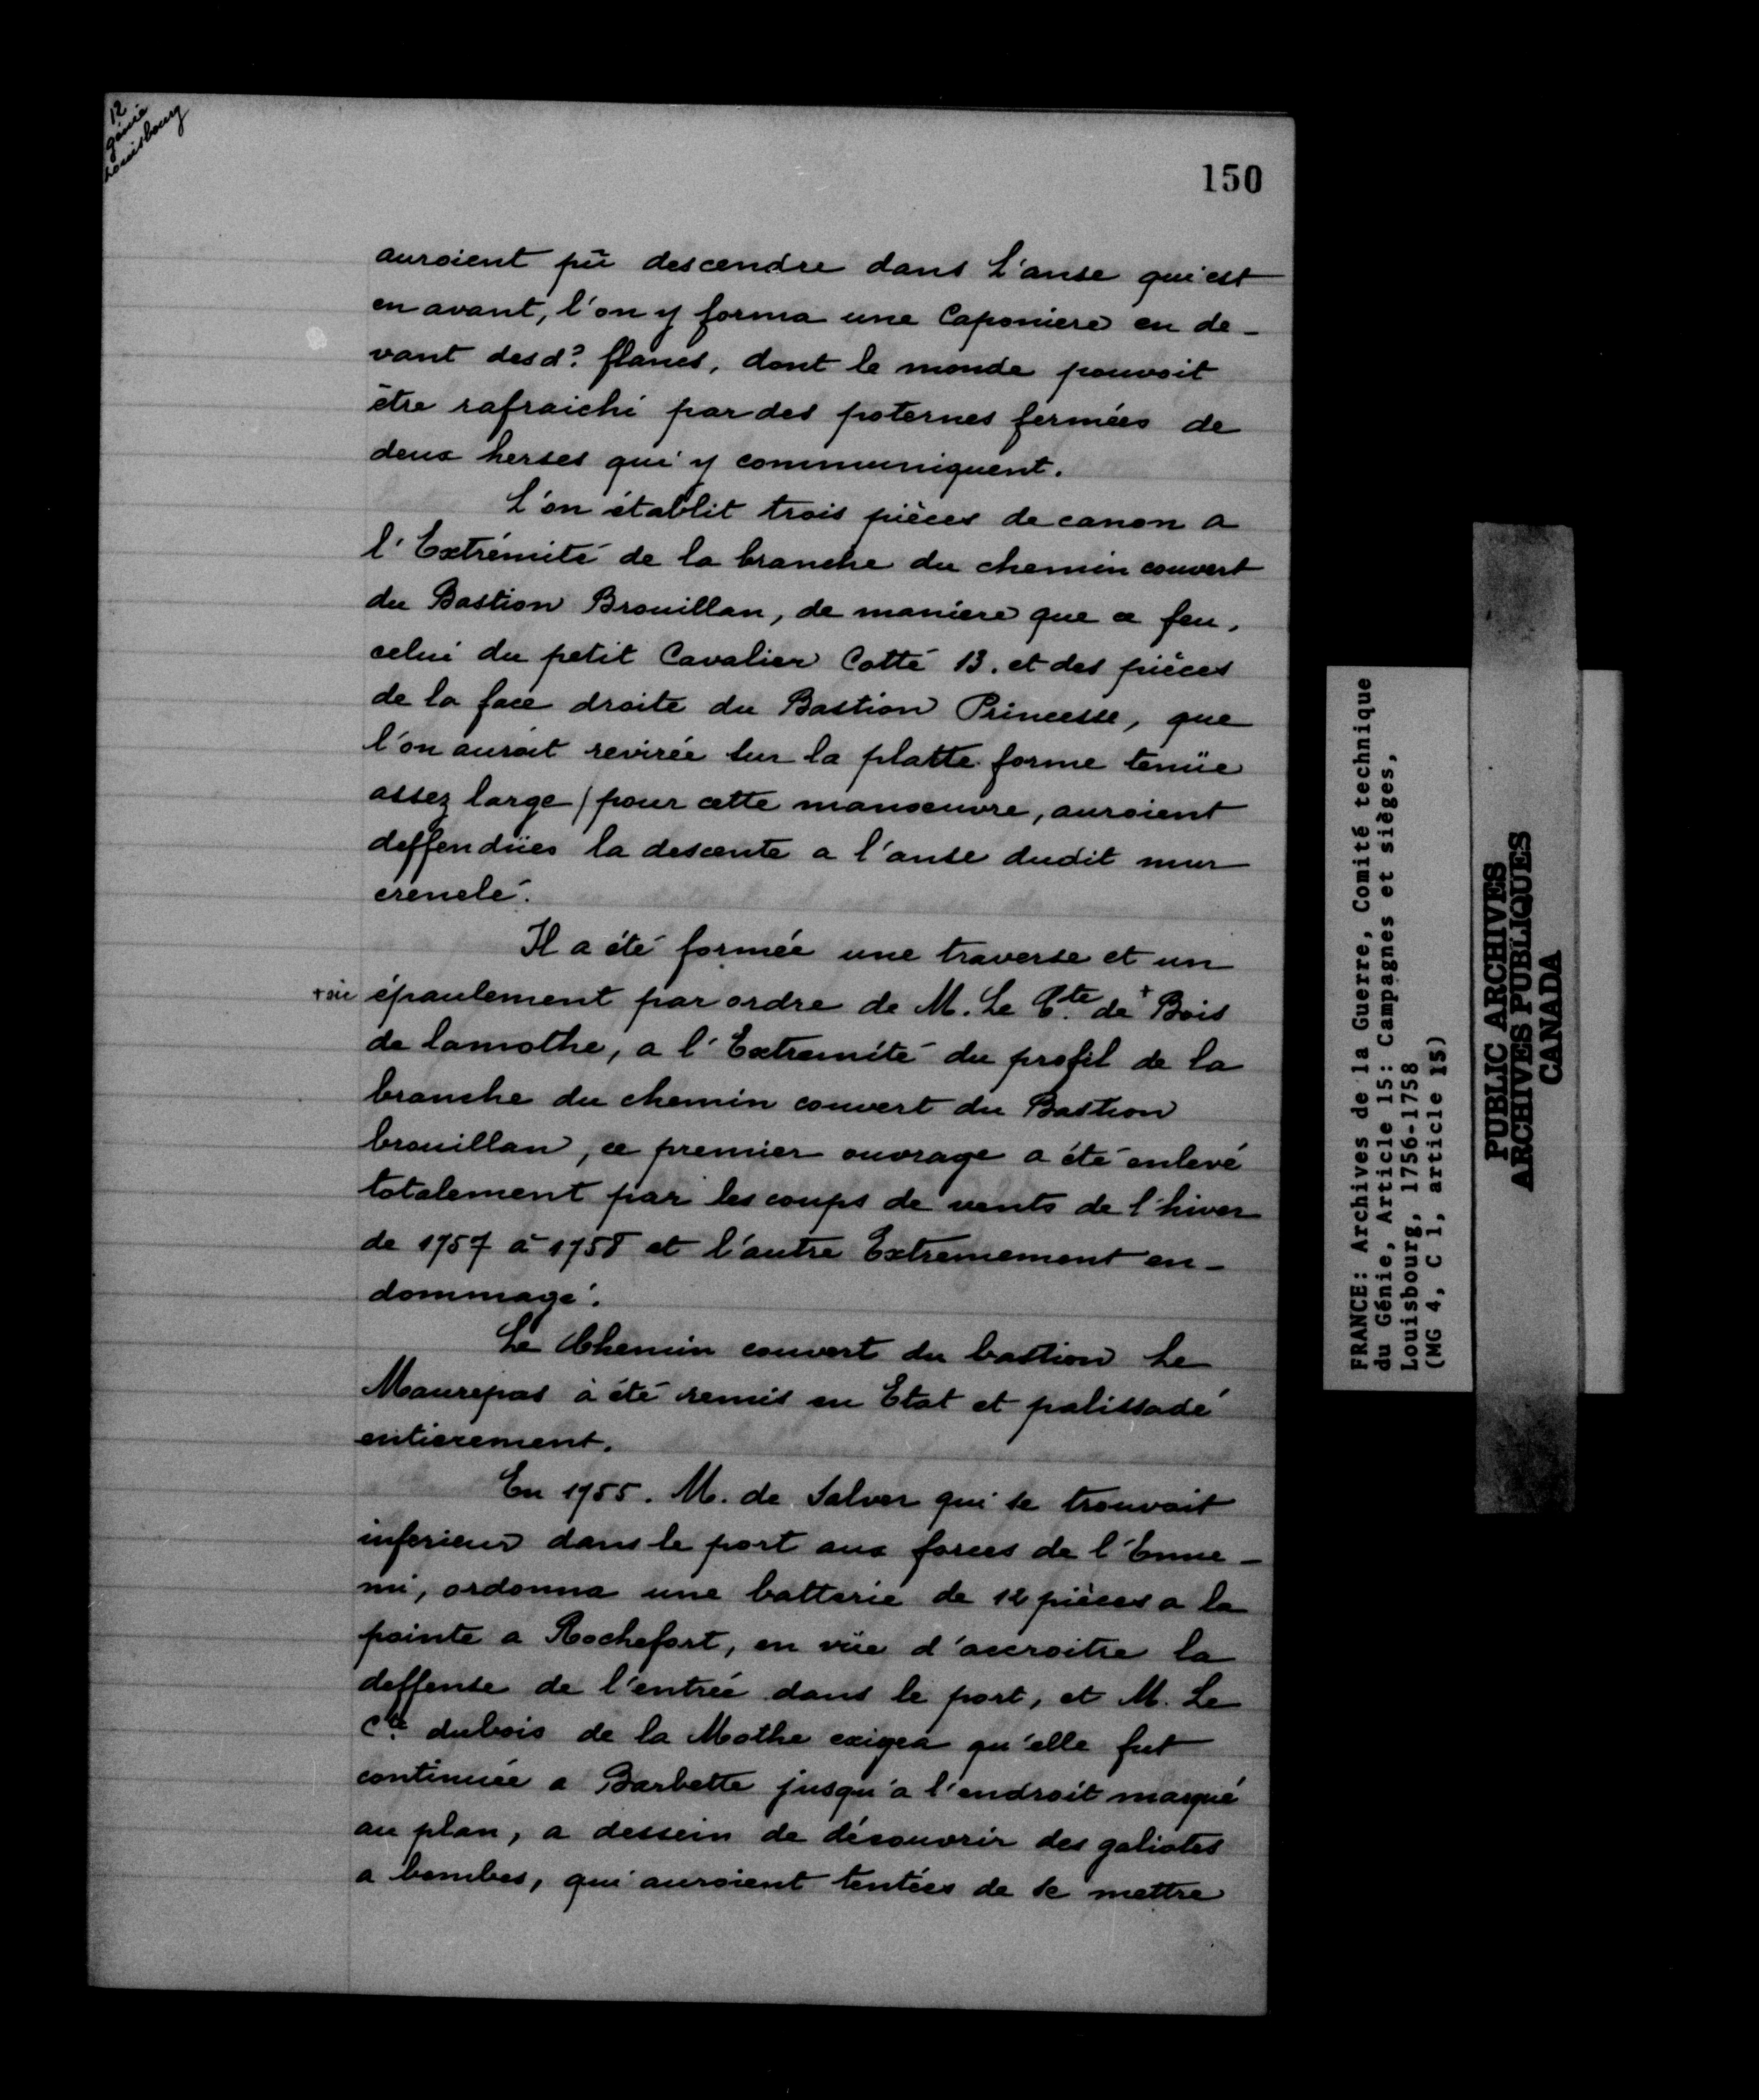 12
génie
Louisbourg
150
auroient pû descendre dans l'anse qui est
en avant, l'on y forma une Caponiere en de-
vant desd? flancs, dont le monde pouvoit
être rafraichi par des poternes fermées de
deux herses qui y communiquent.
L'on établit trois pièces de canon a
l'Extrémité de la branche du chemin couvert
du Bastion Brouillan, de maniere que ce feu,
celui du petit Cavalier Cotté 13. et des pièces
de la face droite du Bastion Princesse, que
l'on auroit revirée sur la platte forme tenüe
assez large / pour cette manoeuvre, auroient
deffendües la descente a l'anse dudit mur
crenelé.
Il a été formée une traverse et un
+ épaulement par ordre de M. Le Cte. de + Bois
de lamothe, a l'Extremité du profil de la
branche du chemin couvert du Bastion
brouillan, ce premier ouvrage a été enlevé
totalement par les coups de vents de l'hiver
de 1757 à 1758 et l'autre Extremement en-
dommagé.
Le Chemin couvert du bastion Le
Maurepas à été remis en Etat et palissadé
entierement.
En 1755. M. de Salver qui se trouvait
inferieur dans le port aux forces de l'Enne-
mi, ordonna une batterie de 12 pièces a la
pointe a Rochefort, en vüe d'accroitre la
deffense de l'entrée dans le port, et M. Le
Cte. dubois de la Mothe exigea qu'elle fut
continuée a Barbette jusqu'a l'endroit marqué
au plan, a dessein de découvrir des galiotes
a bombes, qui auroient tentées de se mettre
FRANCE: Archives de la Guerre, Comité technique
du Génie, Article 15: Campagnes et sièges,
Louisbourg, 1756-1758
(MG 4, C 1, article 15)
PUBLIC ARCHIVES
ARCHIVES PUBLIQUES
CANADA